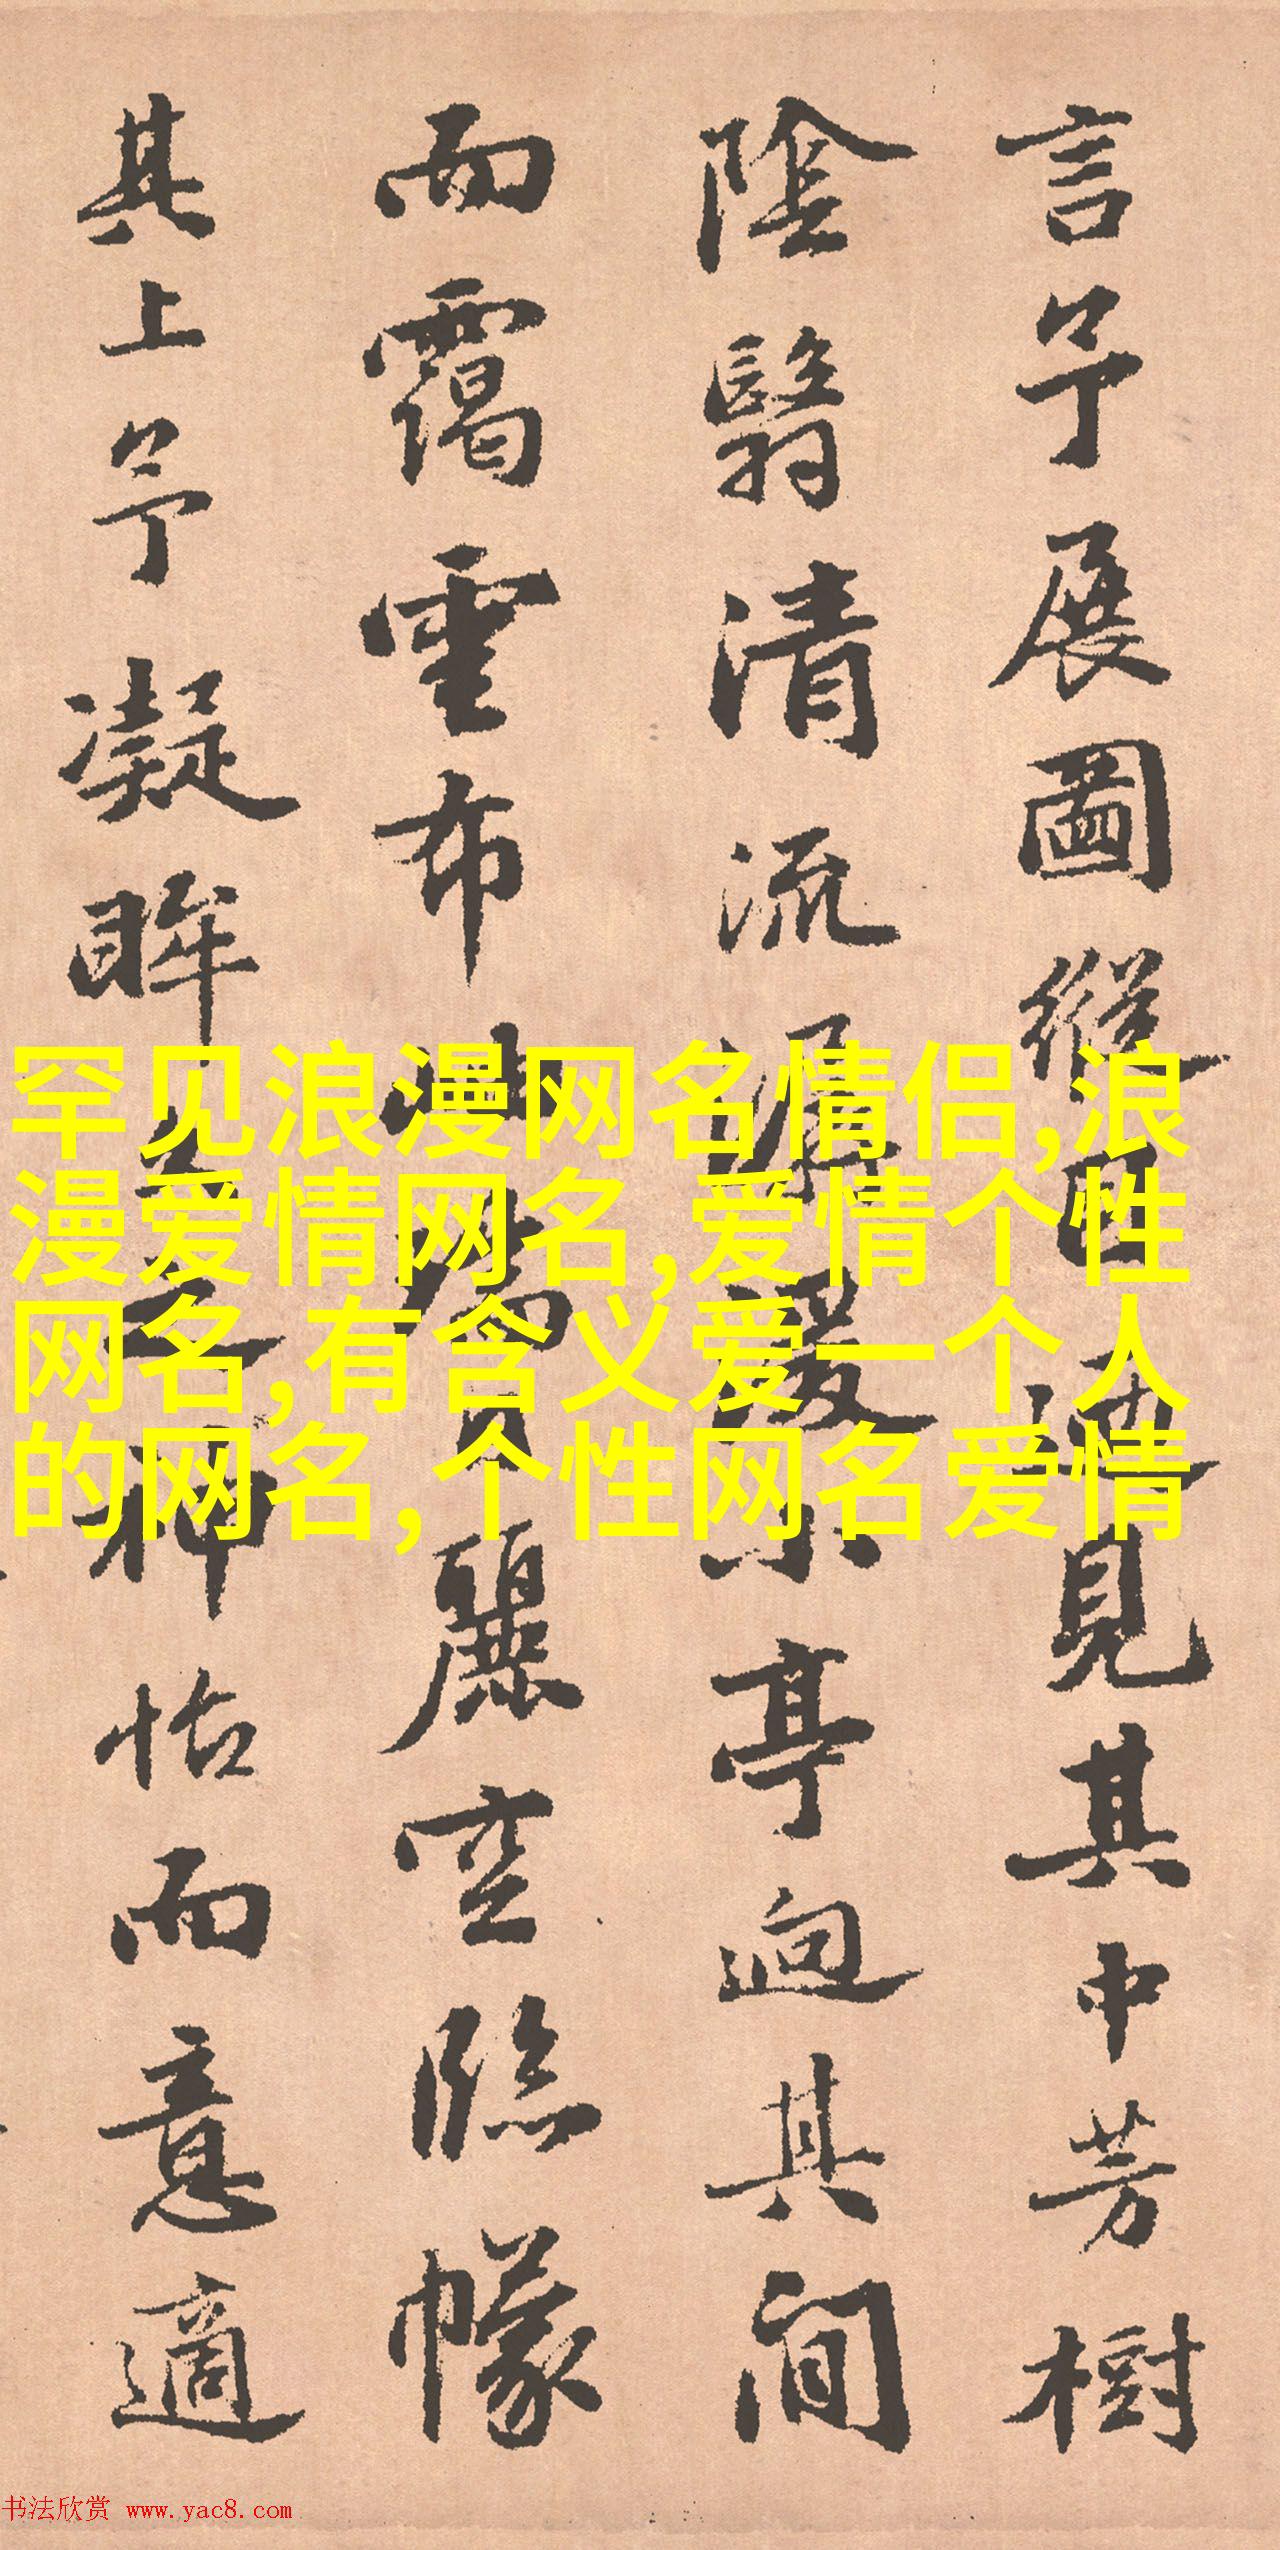 言予展圖縱目遠見其中芳樹
陰翳清流潺湲小亭迥其間
而靄雲布出當麗空臨幪
其上予凝眸之神怡而意適
罕见浪漫网名情侣,浪
漫爱情网名,爱情个性
网名,有含义爱一个人
的网名,个性网名爱情
书法欣赏 www.yac8.com